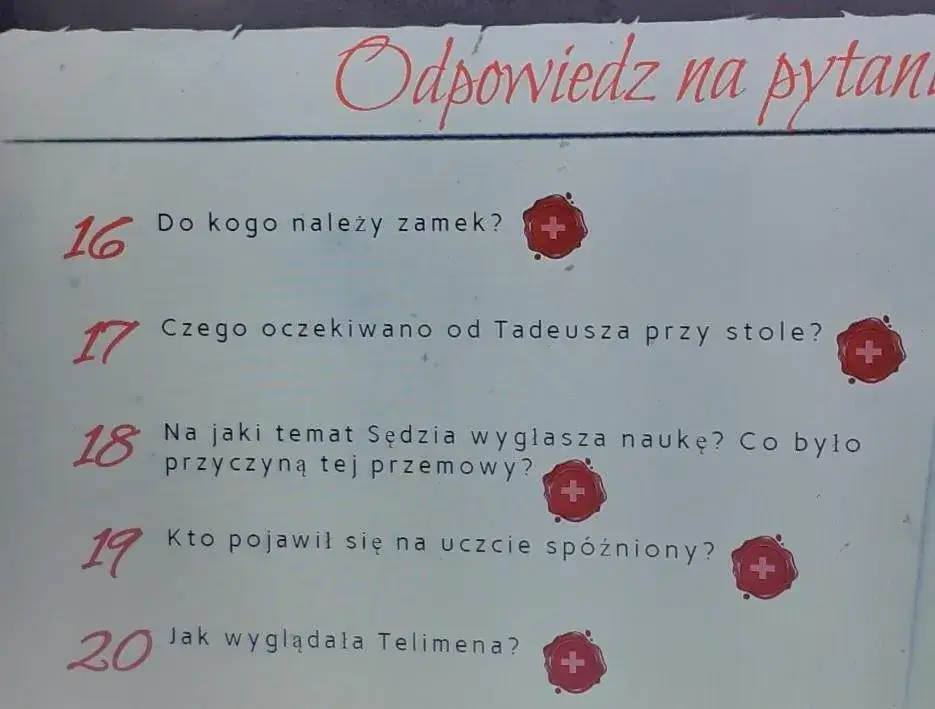 Odpowiedz na pytan
16 Do kogo należy zamek?
17 Czego oczekiwano od Tadeusza przy stole?
18 Na jaki temat Sędzia wygłasza naukę? Co było
przyczyną tej przemowy?
19 Kto pojawił się na uczcie spóźniony?
20 Jak wyglądała Telimena?